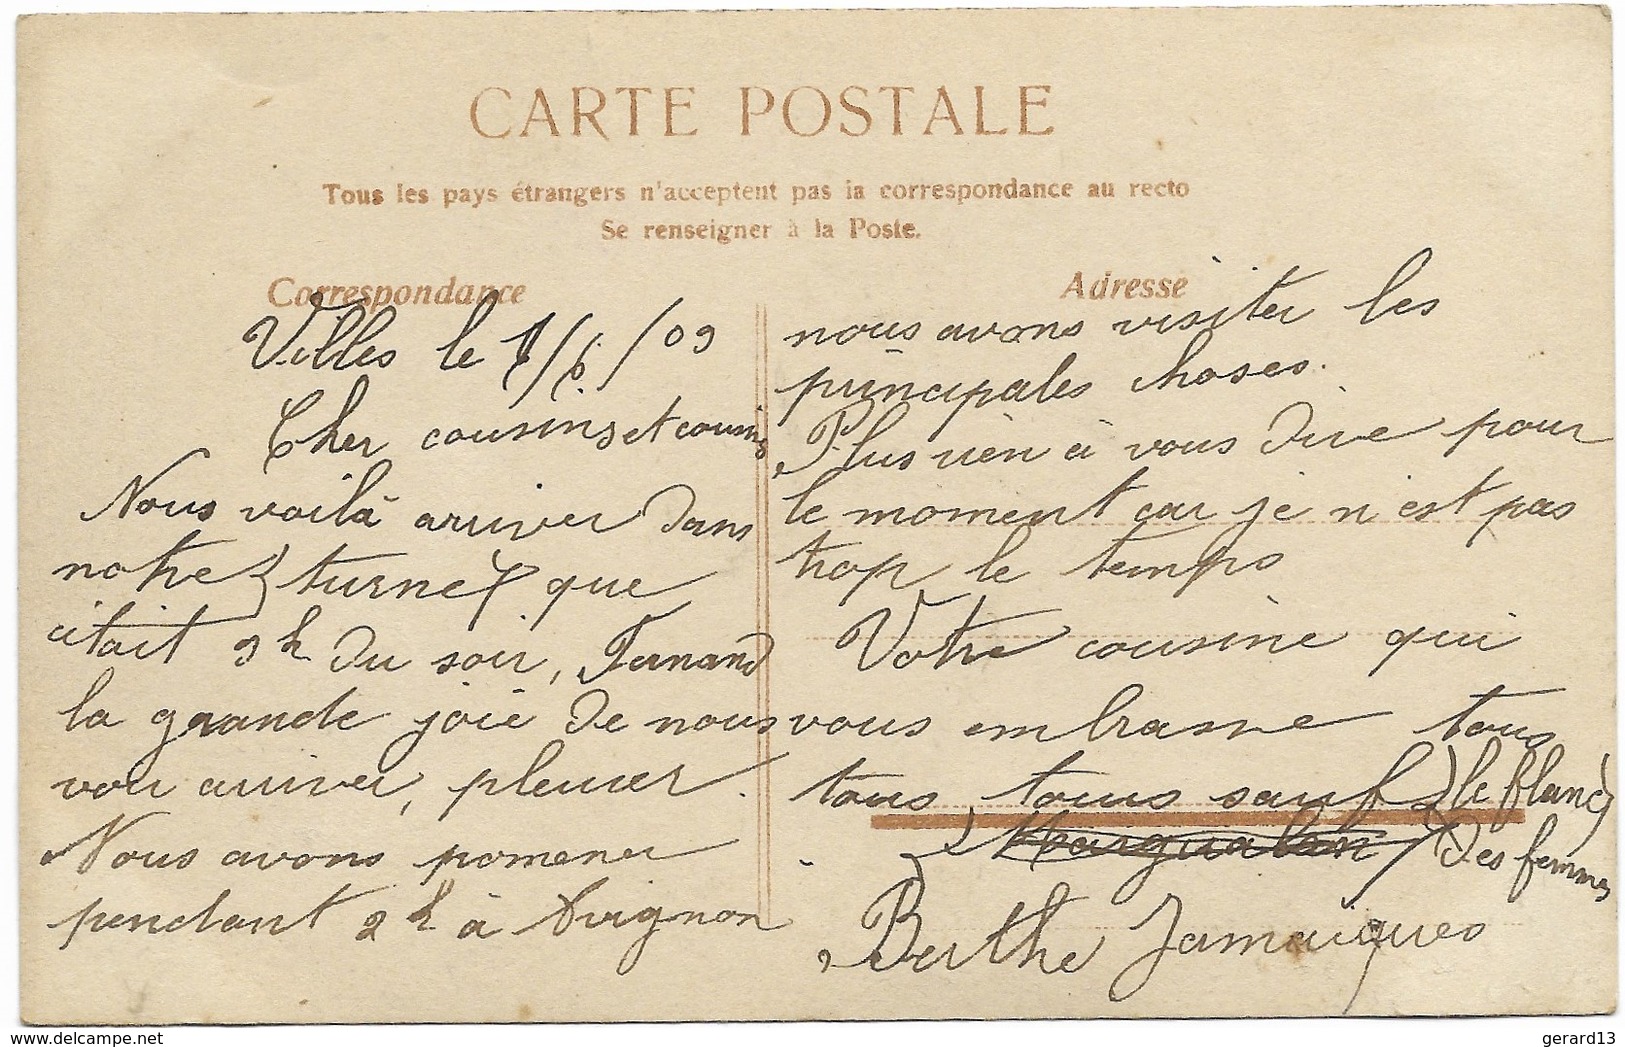 CARTE POSTALE
Tous les pays étrangers n'acceptent pas la correspondance au recto
Se renseigner à la Poste.
Correspondance
Villes le 1/6/09
Cher cousins et cousins
Nous voilà arriver dans
notre turne que
était 9h du soir, Fernand
la grande joie de nous
voir arriver, pleurer.
Nous avons pomener
pendant 2h à Avignon
Adresse
nous avons visiter les
principales choses.
Plus rien à vous dire pour
le moment car je n'est pas
trop le temps
Votre cousine qui
vous embrasse tous
tous, tous sauf (le flanc)
des femmes
Berthe Jamaiques
delcampe.net
gerard13